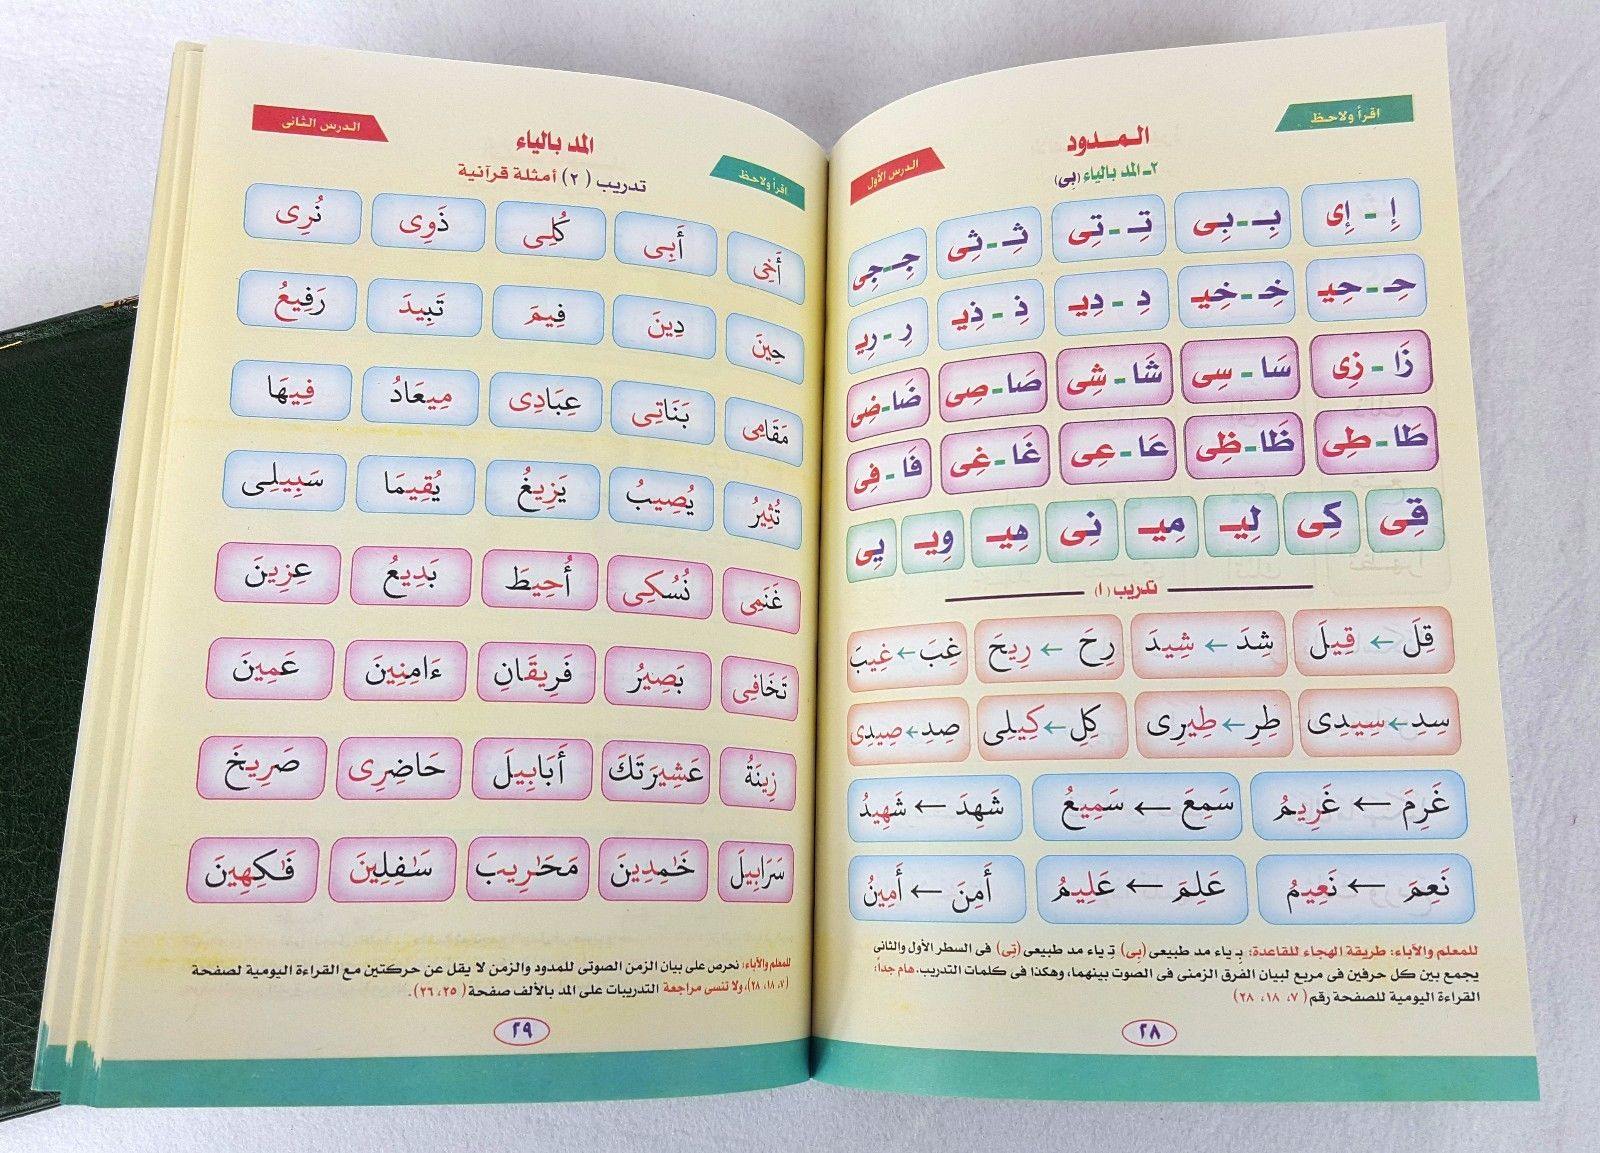 اقرأ ولاحظ
المـدود
الدرس الأول
٢ـ المد بالياء (بى)
إِ - إِى بِـ - بِى تِـ - تِى ثِـ - ثِى جِـ - جِى
حِـ - حِيـ خِـ - خِيـ دِ - دِيـ ذِ - ذِيـ رِ - رِيـ
زَا - زِى سَا - سِى شَا - شِى صَا - صِى ضَا - ضِى
طَا - طِى ظَا - ظِى عَا - عِى غَا - غِى فَا - فِى
قِى كِى لِيـ مِيـ نِى هِيـ وِيـ يِى
تدريب (١)
قِلَ ← قِيلَ شِدَ ← شِيدَ رِحَ ← رِيحَ غِبَ ← غِيبَ
سِدِ ← سِيدِى طِرِ ← طِيرِى كِلِ ← كِيلِى صِدِ ← صِيدِى
غَرِمَ ← غَرِيمُ سَمِعَ ← سَمِيعُ شَهِدَ ← شَهِيدُ
نَعِمَ ← نَعِيمُ عَلِمَ ← عَلِيمُ أَمِنَ ← أَمِينُ
للمعلم والآباء: طريقة الهجاء للقاعدة: بِ ياء مد طبيعى (بِى) تِ ياء مد طبيعى (تِى) فى السطر الأول والثانى
يجمع بين كل حرفين فى مربع لبيان الفرق الزمنى فى الصوت بينهما، وهكذا فى كلمات التدريب. هام جداً:
القراءة اليومية للصفحة رقم (٧، ١٨، ٢٨)
٢٨
الدرس الثانى
المد بالياء
اقرأ ولاحظ
تدريب (٢) أمثلة قرآنية
أَخِى أَبِى كُلِى ذَوِى نُرِى
حِينَ دِينَ فِيمَ تَبِيدَ رَفِيعُ
مَقَامِى بَنَاتِى عِبَادِى مِيعَادُ فِيهَا
تُثِيرُ يُصِيبُ يَزِيغُ يُقِيمَا سَبِيلِى
غَنَمِى نُسُكِى أُحِيطَ بَدِيعُ عِزِينَ
تَخَافِى بَصِيرُ فَرِيقَانِ ءَامِنِينَ عَمِينَ
زِينَةُ عَشِيرَتَكَ أَبَابِيلَ حَاضِرِى صَرِيخَ
سَرَابِيلَ خَٰمِدِينَ مَحَٰرِيبَ سَٰفِلِينَ فَٰكِهِينَ
للمعلم والآباء: نحرص على بيان الزمن الصوتى للمدود والزمن لا يقل عن حركتين مع القراءة اليومية لصفحة
(٧، ١٨، ٢٨)، ولا تنسى مراجعة التدريبات على المد بالألف صفحة (٢٥، ٢٦).
٢٩